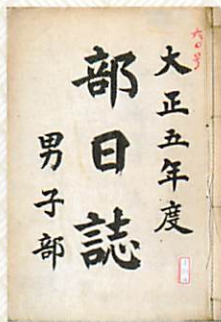 大正五年度
部日誌
男子部